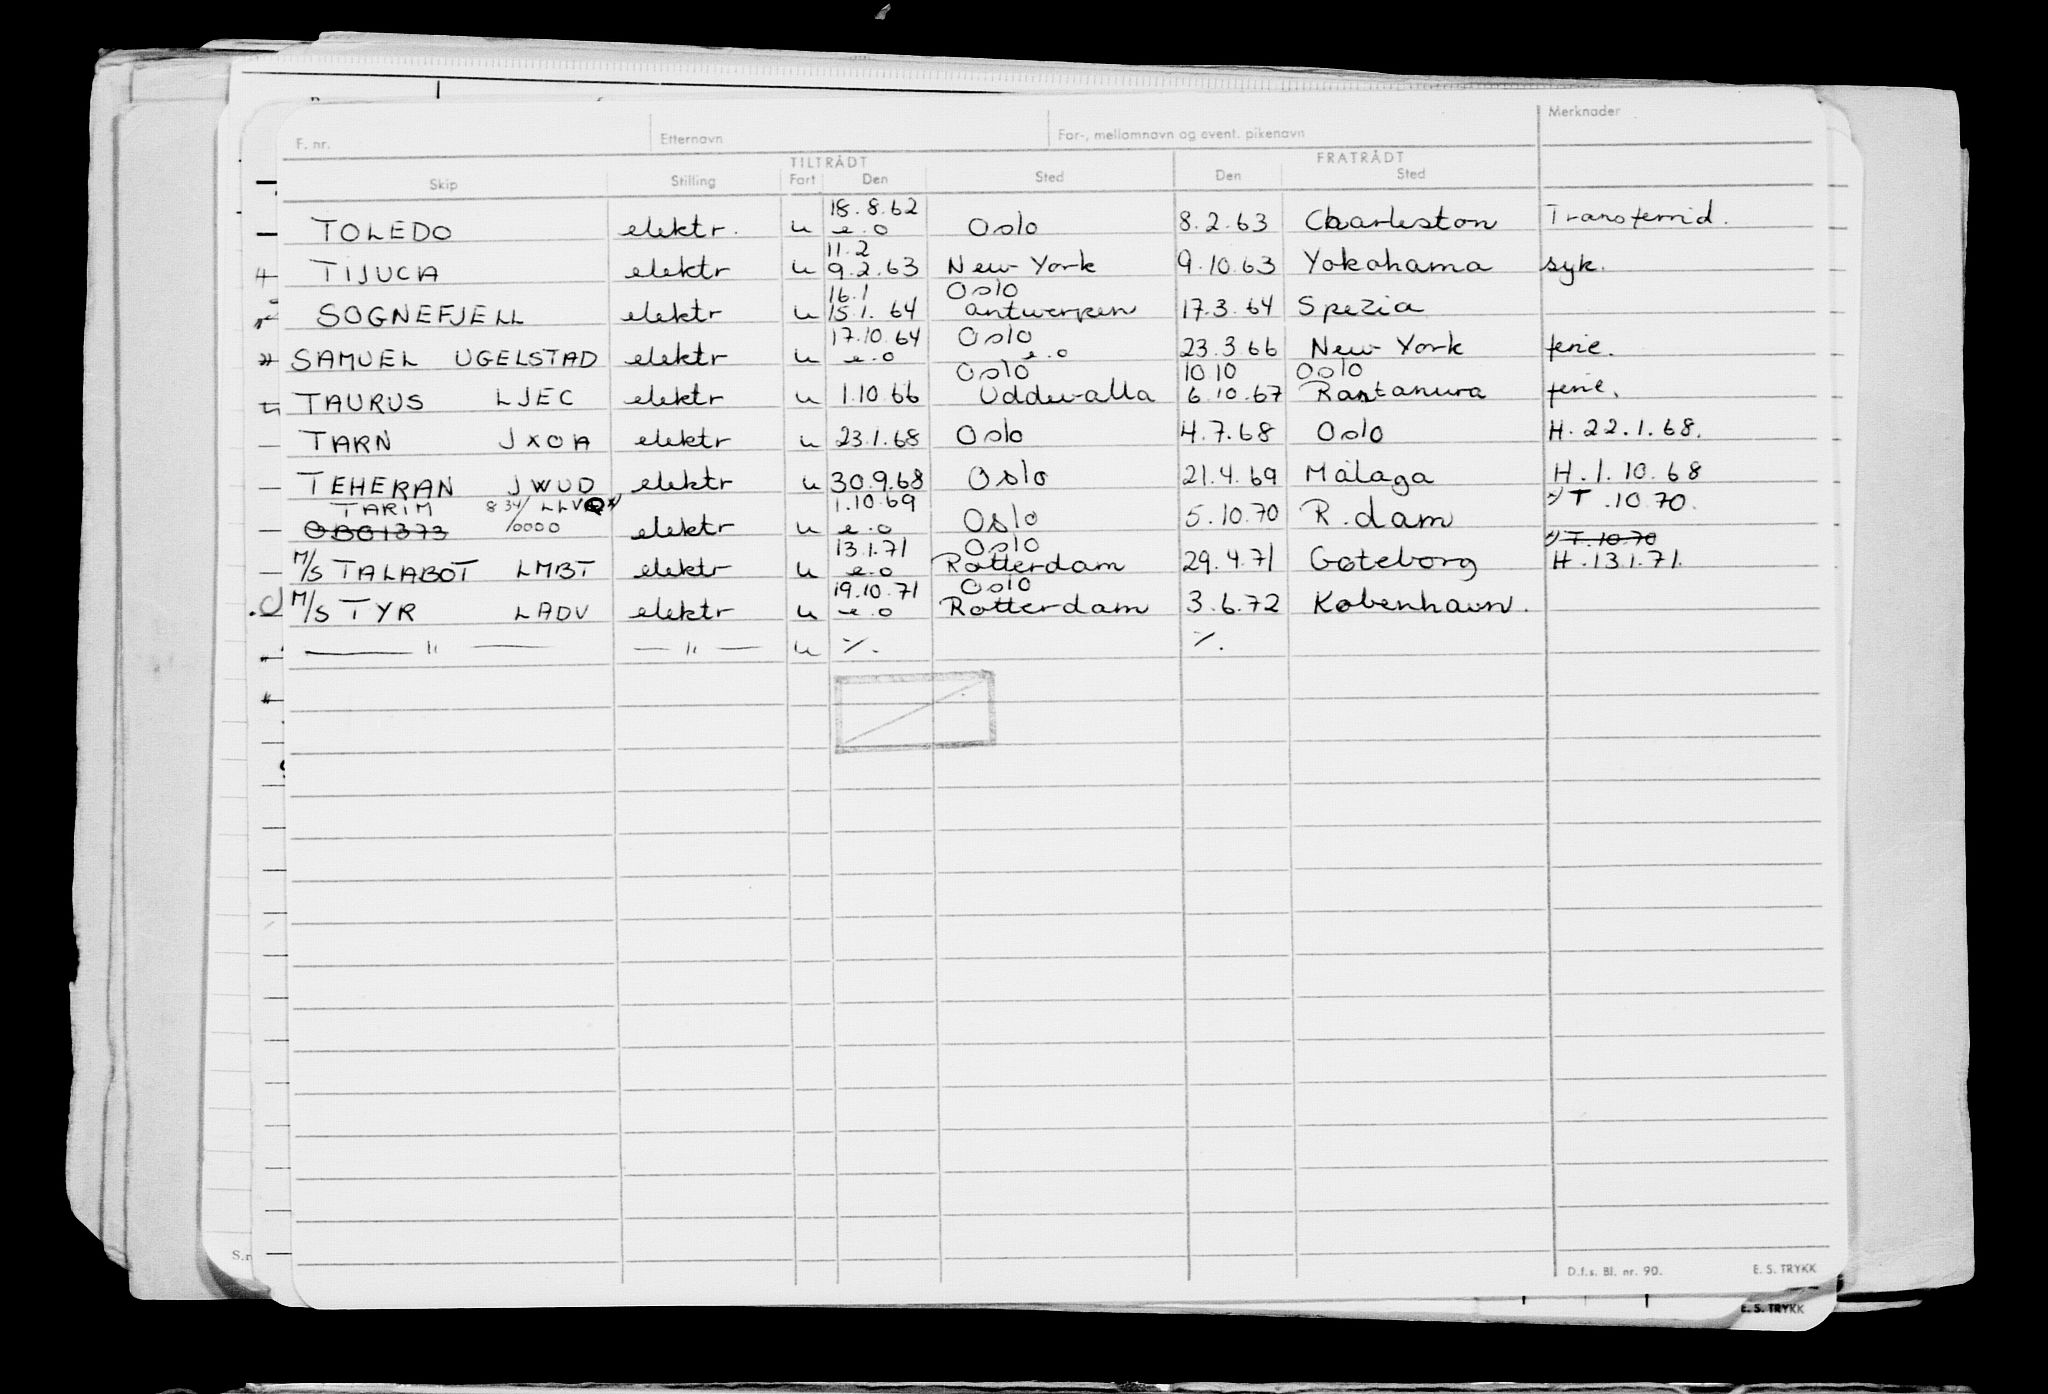 F. nr. Etternavn For-, mellomnavn og event. pikenavn Merknader
TILTRÅDT FRATRÅDT
Skip Stilling Fart Den Sted Den Sted
18.8.62
TOLEDO elektr. u e.o Oslo 8.2.63 Charleston Transferrid.
11.2
TIJUCA elektr u 9.2.63 New York 9.10.63 Yokohama syk.
16.1 Oslo
SOGNEFJELL elektr u 15.1.64 Antwerpen 17.3.64 Spezia
17.10.64 Oslo
SAMUEL UGELSTAD elektr u e.o e.o 23.3.66 New York ferie.
Oslo 10.10 Oslo
TAURUS LJEC elektr u 1.10.66 Uddevalla 6.10.67 Rastanura ferie.
TARN JXOA elektr u 23.1.68 Oslo 4.7.68 Oslo H.22.1.68.
TEHERAN JWUD elektr u 30.9.68 Oslo 21.4.69 Málaga H.1.10.68
TARIM 834/ LLVQ x) 1.10.69 x) T.10.70.
OBO1373 /0000 elektr u e.o Oslo 5.10.70 R.dam
13.1.71 Oslo x) T.10.70
M/S TALABOT LMBT elektr u e.o Rotterdam 29.4.71 Gøteborg H.13.1.71.
19.10.71 Oslo
M/S TYR LADV elektr u e.o Rotterdam 3.6.72 København.
— " — — " — u ٪. ٪.
D.f.s. Bl. nr. 90. E. S. TRYKK
E. S. TRYKK